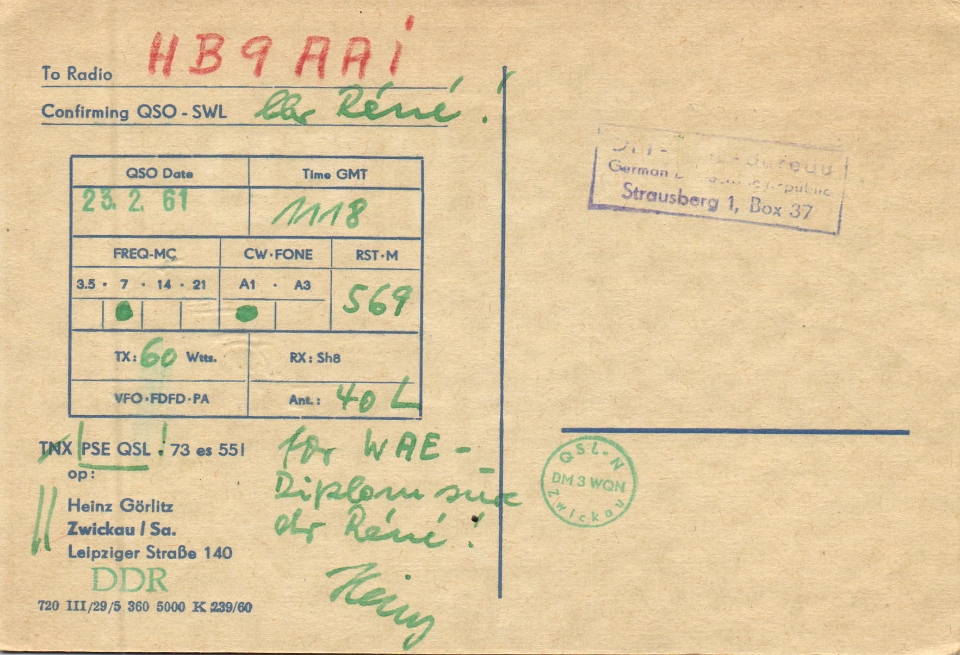 To Radio HB9AAi
Confirming QSO - SWL dr Réné!
QSO Date Time GMT
23. 2. 61 1118
FREQ-MC CW·FONE RST·M
3.5 · 7 · 14 · 21 A1 · A3 569
TX: 60 Wtts. RX: Sh8
VFO·FDFD·PA Ant.: 40 L
TNX PSE QSL ! 73 es 55!
op:
Heinz Görlitz
Zwickau / Sa.
Leipziger Straße 140
DDR
720 III/29/5 360 5000 K 239/60
for WAE-
Diplom sure
dr Réné!
Heinz
German
Strausberg 1, Box 37
QSL-N
DM 3 WQN
Zwickau